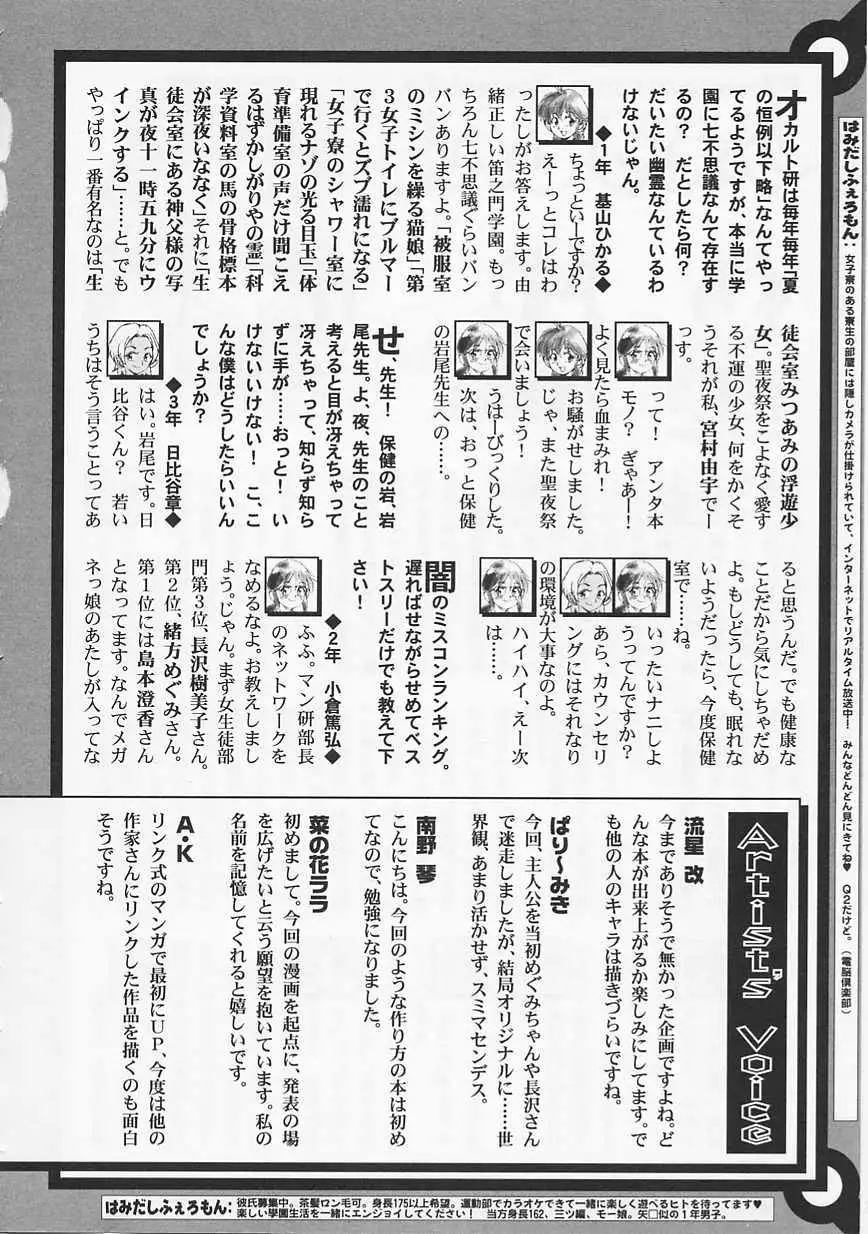 はみだしふぇろもん:女子寮のある寮生の部屋には隠しカメラが仕掛けられていて、インターネットでリアルタイム放送中! みんなどんどん見にきてね♥ Q2だけど。(電脳倶楽部)
オカルト研は毎年毎年「夏
の恒例以下略」なんてやっ
てるようですが、本当に学
園に七不思議なんて存在す
るの? だとしたら何?
だいたい幽霊なんているわ
けないじゃん。
◆1年 基山ひかる◆
ちょっといーですか?
えーっとコレはわ
ったしがお答えします。由
緒正しい笛之門学園。もっ
ちろん七不思議ぐらいバン
バンありますよ。「被服室
のミシンを繰る猫娘」「第
3女子トイレにブルマー
で行くとズブ濡れになる」
「女子寮のシャワー室に
現れるナゾの光る目玉」「体
育準備室の声だけ聞こえ
るはずかしがりやの霊」「科
学資料室の馬の骨格標本
が深夜いななく」それに「生
徒会室にある神父様の写
真が夜十一時五九分にウ
インクする」……と。でも
やっぱり一番有名なのは「生
徒会室みつあみの浮遊少
女」。聖夜祭をこよなく愛す
る不運の少女、何をかくそ
うそれが私、宮村由宇でー
っす。
って! アンタ本
モノ? ぎゃあー!
よく見たら血まみれ!
お騒がせしました。
じゃ、また聖夜祭
で会いましょう!
うはーびっくりした。
次は、おっと保健
の岩尾先生への……。
せ、先生! 保健の岩、岩
尾先生。よ、夜、先生のこと
考えると目が冴えちゃって
冴えちゃって、知らず知ら
ずに手が……おっと! い
けないいけない! こ、こ
んな僕はどうしたらいいん
でしょうか?
◆3年 日比谷章◆
はい。岩尾です。日
比谷くん? 若い
うちはそう言うことってあ
ると思うんだ。でも健康な
ことだから気にしちゃだめ
よ。もしどうしても、眠れな
いようだったら、今度保健
室で……ね。
いったいナニしよ
うってんですか?
あら、カウンセリ
ングにはそれなり
の環境が大事なのよ。
ハイハイ、えー次
は……。
闇のミスコンランキング。
遅ればせながらせめてベス
トスリーだけでも教えて下
さい!
◆2年 小倉篤弘◆
ふふ。マン研部長
のネットワークを
なめるなよ。お教えしまし
ょう。じゃん。まず女生徒部
門第3位、長沢樹美子さん。
第2位、緒方めぐみさん。
第1位には島本澄香さん
となってます。なんでメガ
ネっ娘のあたしが入ってな
Artist's Voice
流星 改
今までありそうで無かった企画ですよね。ど
んな本が出来上がるか楽しみにしてます。で
も他の人のキャラは描きづらいですね。
ぱり〜みき
今回、主人公を当初めぐみちゃんや長沢さん
で迷走しましたが、結局オリジナルに……世
界観、あまり活かせず、スミマセンデス。
南野 琴
こんにちは。今回のような作り方の本は初め
てなので、勉強になりました。
菜の花ララ
初めまして。今回の漫画を起点に、発表の場
を広げたいと云う願望を抱いています。私の
名前を記憶してくれると嬉しいです。
A・K
リンク式のマンガで最初にUP、今度は他の
作家さんにリンクした作品を描くのも面白
そうですね。
はみだしふぇろもん:彼氏募集中。茶髪ロン毛可。身長175以上希望。運動部でカラオケできて一緒に楽しく遊べるヒトを待ってます♥
楽しい學園生活を一緒にエンジョイしてください! 当方身長162、三ツ編、モー娘。矢口似の1年男子。